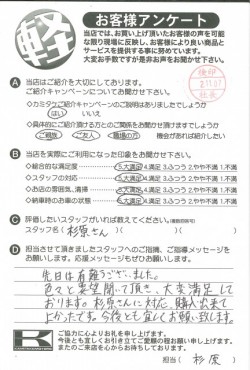 軽
お客様アンケート
当店では、お買い上げ頂いたお客様の声を可能
な限り現場に反映し、お客様により良い商品と
サービスを提供する事に努めています。
大変お手数ですが是非お声をお聞かせ下さい。
A 当店はご紹介を大切にしております。
ご紹介キャンペーンについてお聞かせ下さい。
・カミタケご紹介キャンペーンのご説明はありましたでしょうか
はい いいえ
・具体的にご紹介頂ける方とのご関係をお聞かせ頂けますでしょうか
ご親族 ご友人 職場の方 機会があれば紹介したい
B 当店を実際にご利用になった印象をお聞かせ下さい。
◇総合的な満足度 5.大満足 4.満足 3.ふつう 2.やや不満 1.不満
◇スタッフの対応 5.大満足 4.満足 3.ふつう 2.やや不満 1.不満
◇お店の雰囲気、清掃 5.大満足 4.満足 3.ふつう 2.やや不満 1.不満
◇納車時のお車の状態 5.大満足 4.満足 3.ふつう 2.やや不満 1.不満
C 評価したいスタッフがいれば教えてください。(複数回答可)
スタッフ名( 杉原さん )( )( )
D 担当させて頂きましたスタッフへのご指摘、ご指導メッセージをお
願いします。応援メッセージもぜひお願いします。
先日は有難うございました。
色々と要望聞いて頂き、大変満足して
おります。杉原さんに対応、購入出来て
よかったです。今後とも宜しくお願い致します。
K
ご協力に心よりお礼を申し上げます。
今後とも宜しくお引き立てご愛顧の程お願い申し上げます。
またのご来店を心からお待ちしております。
担当( 杉原 )